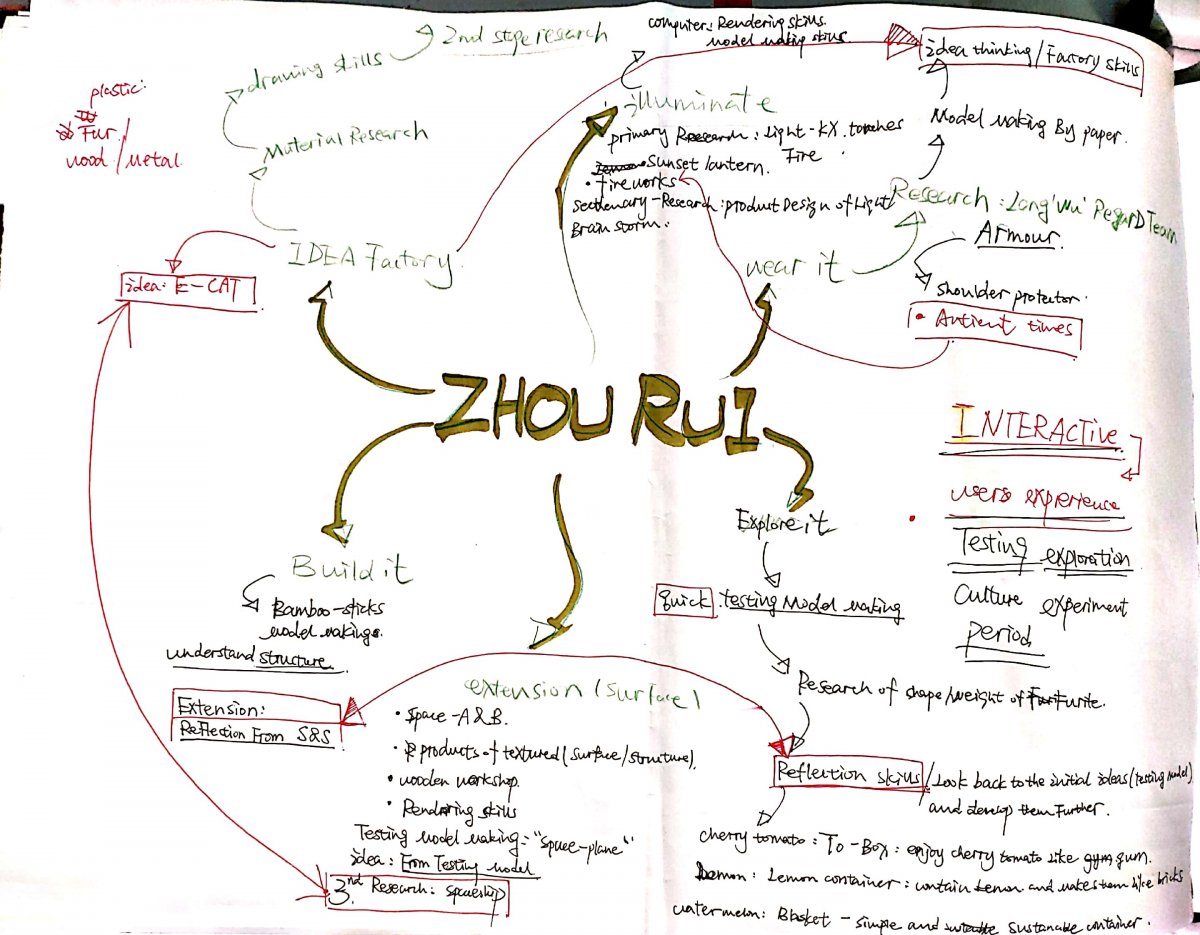 computer: Rendering skills.
model making skills.
2nd stge research
drawing skills
idea thinking / Factory skills
plastic.
Fur. /
wood / metal
Material Research
illuminate
primary Research : Light - KX. torches
Fire
Sunset lantern.
• fireworks
Research : product Design of Light
Brain storm.
Model Making By paper.
Research :
Team
Armour.
shoulder protector.
• Antient times
IDEA Factory.
wear it
idea: E-CAT
ZHOU RUI
INTERACTIVE
users experience
Testing exploration
Culture experiment
period
Explore it
quick. testing Model Making
Research of shape/weight of
Reflection skills / Look back to the initial ideas (testing model)
and develop them Further.
cherry tomato : To-Box : enjoy cherry tomato like gum.
Lemon : Lemon container : contain Lemon and makes them like bricks
watermelon: Basket - simple and container.
Build it
Bamboo-sticks
model makings.
understand structure
Extension:
Reflection From S&S
extension (surface)
• Space - A & B.
• products of textured (surface/structure).
• wooden workshop.
• Rendering skills
Testing model making: "space-plane"
idea: From Testing model
3.nd Research: spaceship